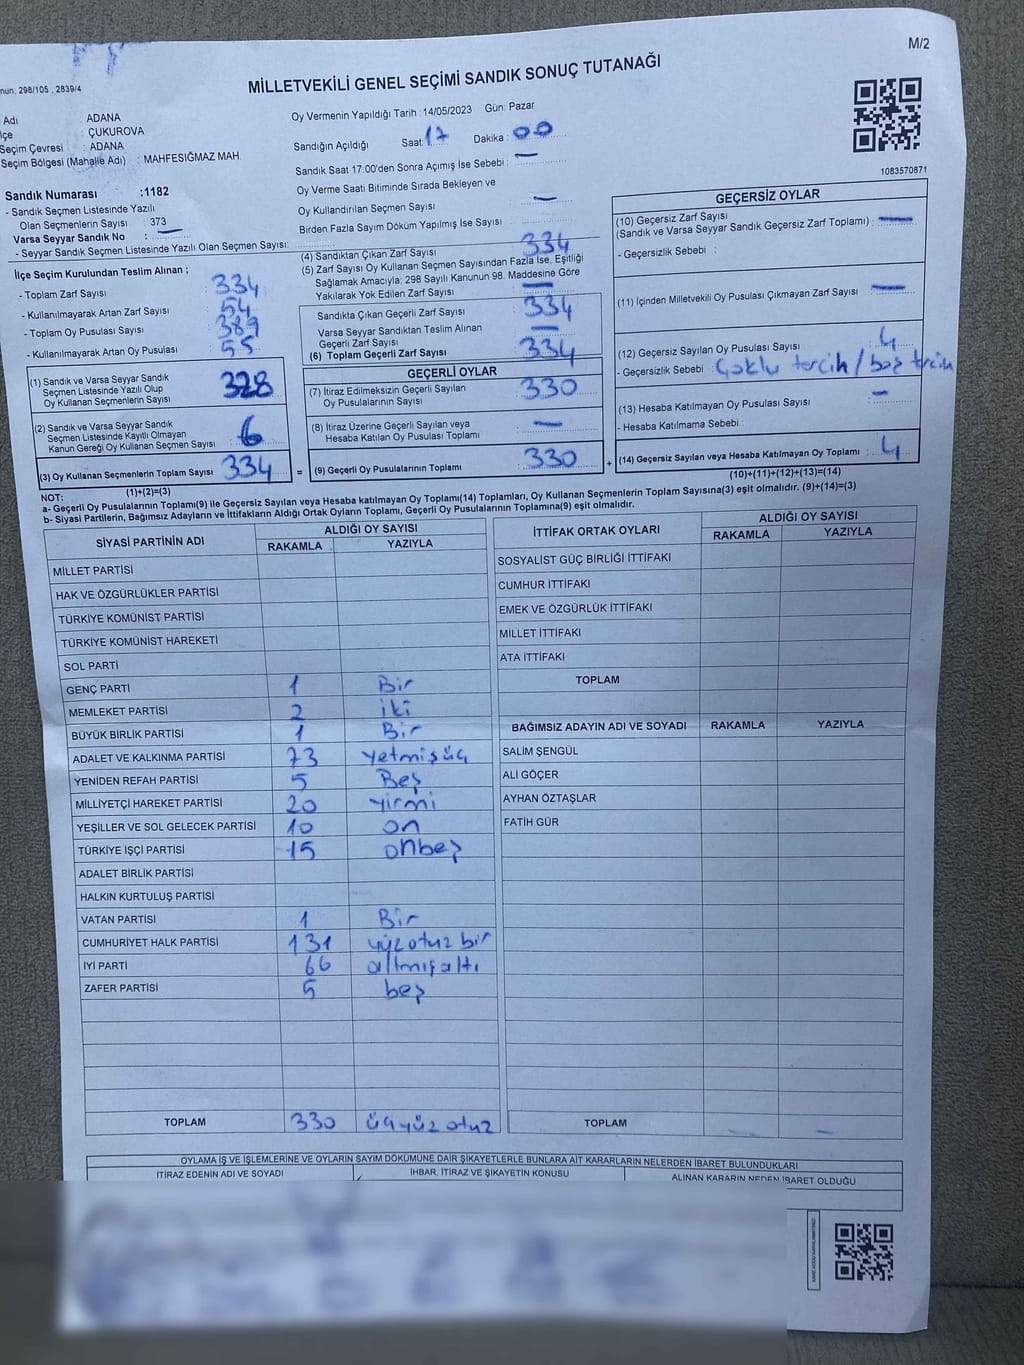 M/2
nun: 298/105 , 2839/4
MİLLETVEKİLİ GENEL SEÇİMİ SANDIK SONUÇ TUTANAĞI
Adı : ADANA
lçe : ÇUKUROVA
Seçim Çevresi : ADANA
Seçim Bölgesi (Mahalle Adı) : MAHFESIĞMAZ MAH.
Sandık Numarası :1182
- Sandık Seçmen Listesinde Yazılı
Olan Seçmenlerin Sayısı : 373
Varsa Seyyar Sandık No : —
- Seyyar Sandık Seçmen Listesinde Yazılı Olan Seçmen Sayısı:
Oy Vermenin Yapıldığı Tarih : 14/05/2023 Gün: Pazar
Sandığın Açıldığı Saat 17 Dakika : 00
Sandık Saat 17:00'den Sonra Açımış İse Sebebi : —
Oy Verme Saati Bitiminde Sırada Bekleyen ve
Oy Kullandırılan Seçmen Sayısı —
Birden Fazla Sayım Döküm Yapılmış İse Sayısı :
1083570871
İlçe Seçim Kurulundan Teslim Alınan ;
- Toplam Zarf Sayısı : 334
- Kullanılmayarak Artan Zarf Sayısı : 54
- Toplam Oy Pusulası Sayısı : 389
- Kullanılmayarak Artan Oy Pusulası : 55
(1) Sandık ve Varsa Seyyar Sandık
Seçmen Listesinde Yazılı Olup
Oy Kullanan Seçmenlerin Sayısı 328
(2) Sandık ve Varsa Seyyar Sandık
Seçmen Listesinde Kayıtlı Olmayan
Kanun Gereği Oy Kullanan Seçmen Sayısı 6
(3) Oy Kullanan Seçmenlerin Toplam Sayısı 334 =
(1)+(2)=(3)
(4) Sandıktan Çıkan Zarf Sayısı : 334
(5) Zarf Sayısı Oy Kullanan Seçmen Sayısından Fazla İse, Eşitliği
Sağlamak Amacıyla; 298 Sayılı Kanunun 98. Maddesine Göre
Yakılarak Yok Edilen Zarf Sayısı : —
Sandıkta Çıkan Geçerli Zarf Sayısı : 334
Varsa Seyyar Sandıktan Teslim Alınan
Geçerli Zarf Sayısı : —
(6) Toplam Geçerli Zarf Sayısı : 334
GEÇERLİ OYLAR
(7) İtiraz Edilmeksizin Geçerli Sayılan
Oy Pusulalarının Sayısı : 330
(8) İtiraz Üzerine Geçerli Sayılan veya
Hesaba Katılan Oy Pusulası Toplamı : —
(9) Geçerli Oy Pusulalarının Toplamı : 330 +
GEÇERSİZ OYLAR
(10) Geçersiz Zarf Sayısı : —
(Sandık ve Varsa Seyyar Sandık Geçersiz Zarf Toplamı)
- Geçersizlik Sebebi :
(11) İçinden Milletvekili Oy Pusulası Çıkmayan Zarf Sayısı : —
(12) Geçersiz Sayılan Oy Pusulası Sayısı : 4
- Geçersizlik Sebebi : Çoklu tercih / boş tercih
(13) Hesaba Katılmayan Oy Pusulası Sayısı : —
- Hesaba Katılmama Sebebi :
(14) Geçersiz Sayılan veya Hesaba Katılmayan Oy Toplamı : 4
(10)+(11)+(12)+(13)=(14)
NOT:
a- Geçerli Oy Pusulalarının Toplamı(9) ile Geçersiz Sayılan veya Hesaba katılmayan Oy Toplamı(14) Toplamları, Oy Kullanan Seçmenlerin Toplam Sayısına(3) eşit olmalıdır. (9)+(14)=(3)
b- Siyasi Partilerin, Bağımsız Adayların ve İttifakların Aldığı Ortak Oyların Toplamı, Geçerli Oy Pusulalarının Toplamına(9) eşit olmalıdır.
SİYASİ PARTİNİN ADI ALDIĞI OY SAYISI
RAKAMLA YAZIYLA
MİLLET PARTİSİ
HAK VE ÖZGÜRLÜKLER PARTİSİ
TÜRKİYE KOMÜNİST PARTİSİ
TÜRKİYE KOMÜNİST HAREKETİ
SOL PARTİ
GENÇ PARTİ 1 Bir
MEMLEKET PARTİSİ 2 iki
BÜYÜK BİRLİK PARTİSİ 1 Bir
ADALET VE KALKINMA PARTİSİ 73 yetmişüç
YENİDEN REFAH PARTİSİ 5 Beş
MİLLİYETÇİ HAREKET PARTİSİ 20 yirmi
YEŞİLLER VE SOL GELECEK PARTİSİ 10 on
TÜRKİYE İŞÇİ PARTİSİ 15 onbeş
ADALET BİRLİK PARTİSİ
HALKIN KURTULUŞ PARTİSİ
VATAN PARTİSİ 1 Bir
CUMHURİYET HALK PARTİSİ 131 yüzotuz bir
İYİ PARTİ 66 altmışaltı
ZAFER PARTİSİ 5 beş
TOPLAM 330 üçyüz otuz
İTTİFAK ORTAK OYLARI ALDIĞI OY SAYISI
RAKAMLA YAZIYLA
SOSYALİST GÜÇ BİRLİĞİ İTTİFAKI
CUMHUR İTTİFAKI
EMEK VE ÖZGÜRLÜK İTTİFAKI
MİLLET İTTİFAKI
ATA İTTİFAKI
TOPLAM
BAĞIMSIZ ADAYIN ADI VE SOYADI RAKAMLA YAZIYLA
SALİM ŞENGÜL
ALİ GÖÇER
AYHAN ÖZTAŞLAR
FATİH GÜR
TOPLAM — —
OYLAMA İŞ VE İŞLEMLERİNE VE OYLARIN SAYIM DÖKÜMÜNE DAİR ŞİKAYETLERLE BUNLARA AİT KARARLARIN NELERDEN İBARET BULUNDUKLARI
İTİRAZ EDENİN ADI VE SOYADI İHBAR, İTİRAZ VE ŞİKAYETİN KONUSU ALINAN KARARIN NEDEN İBARET OLDUĞU